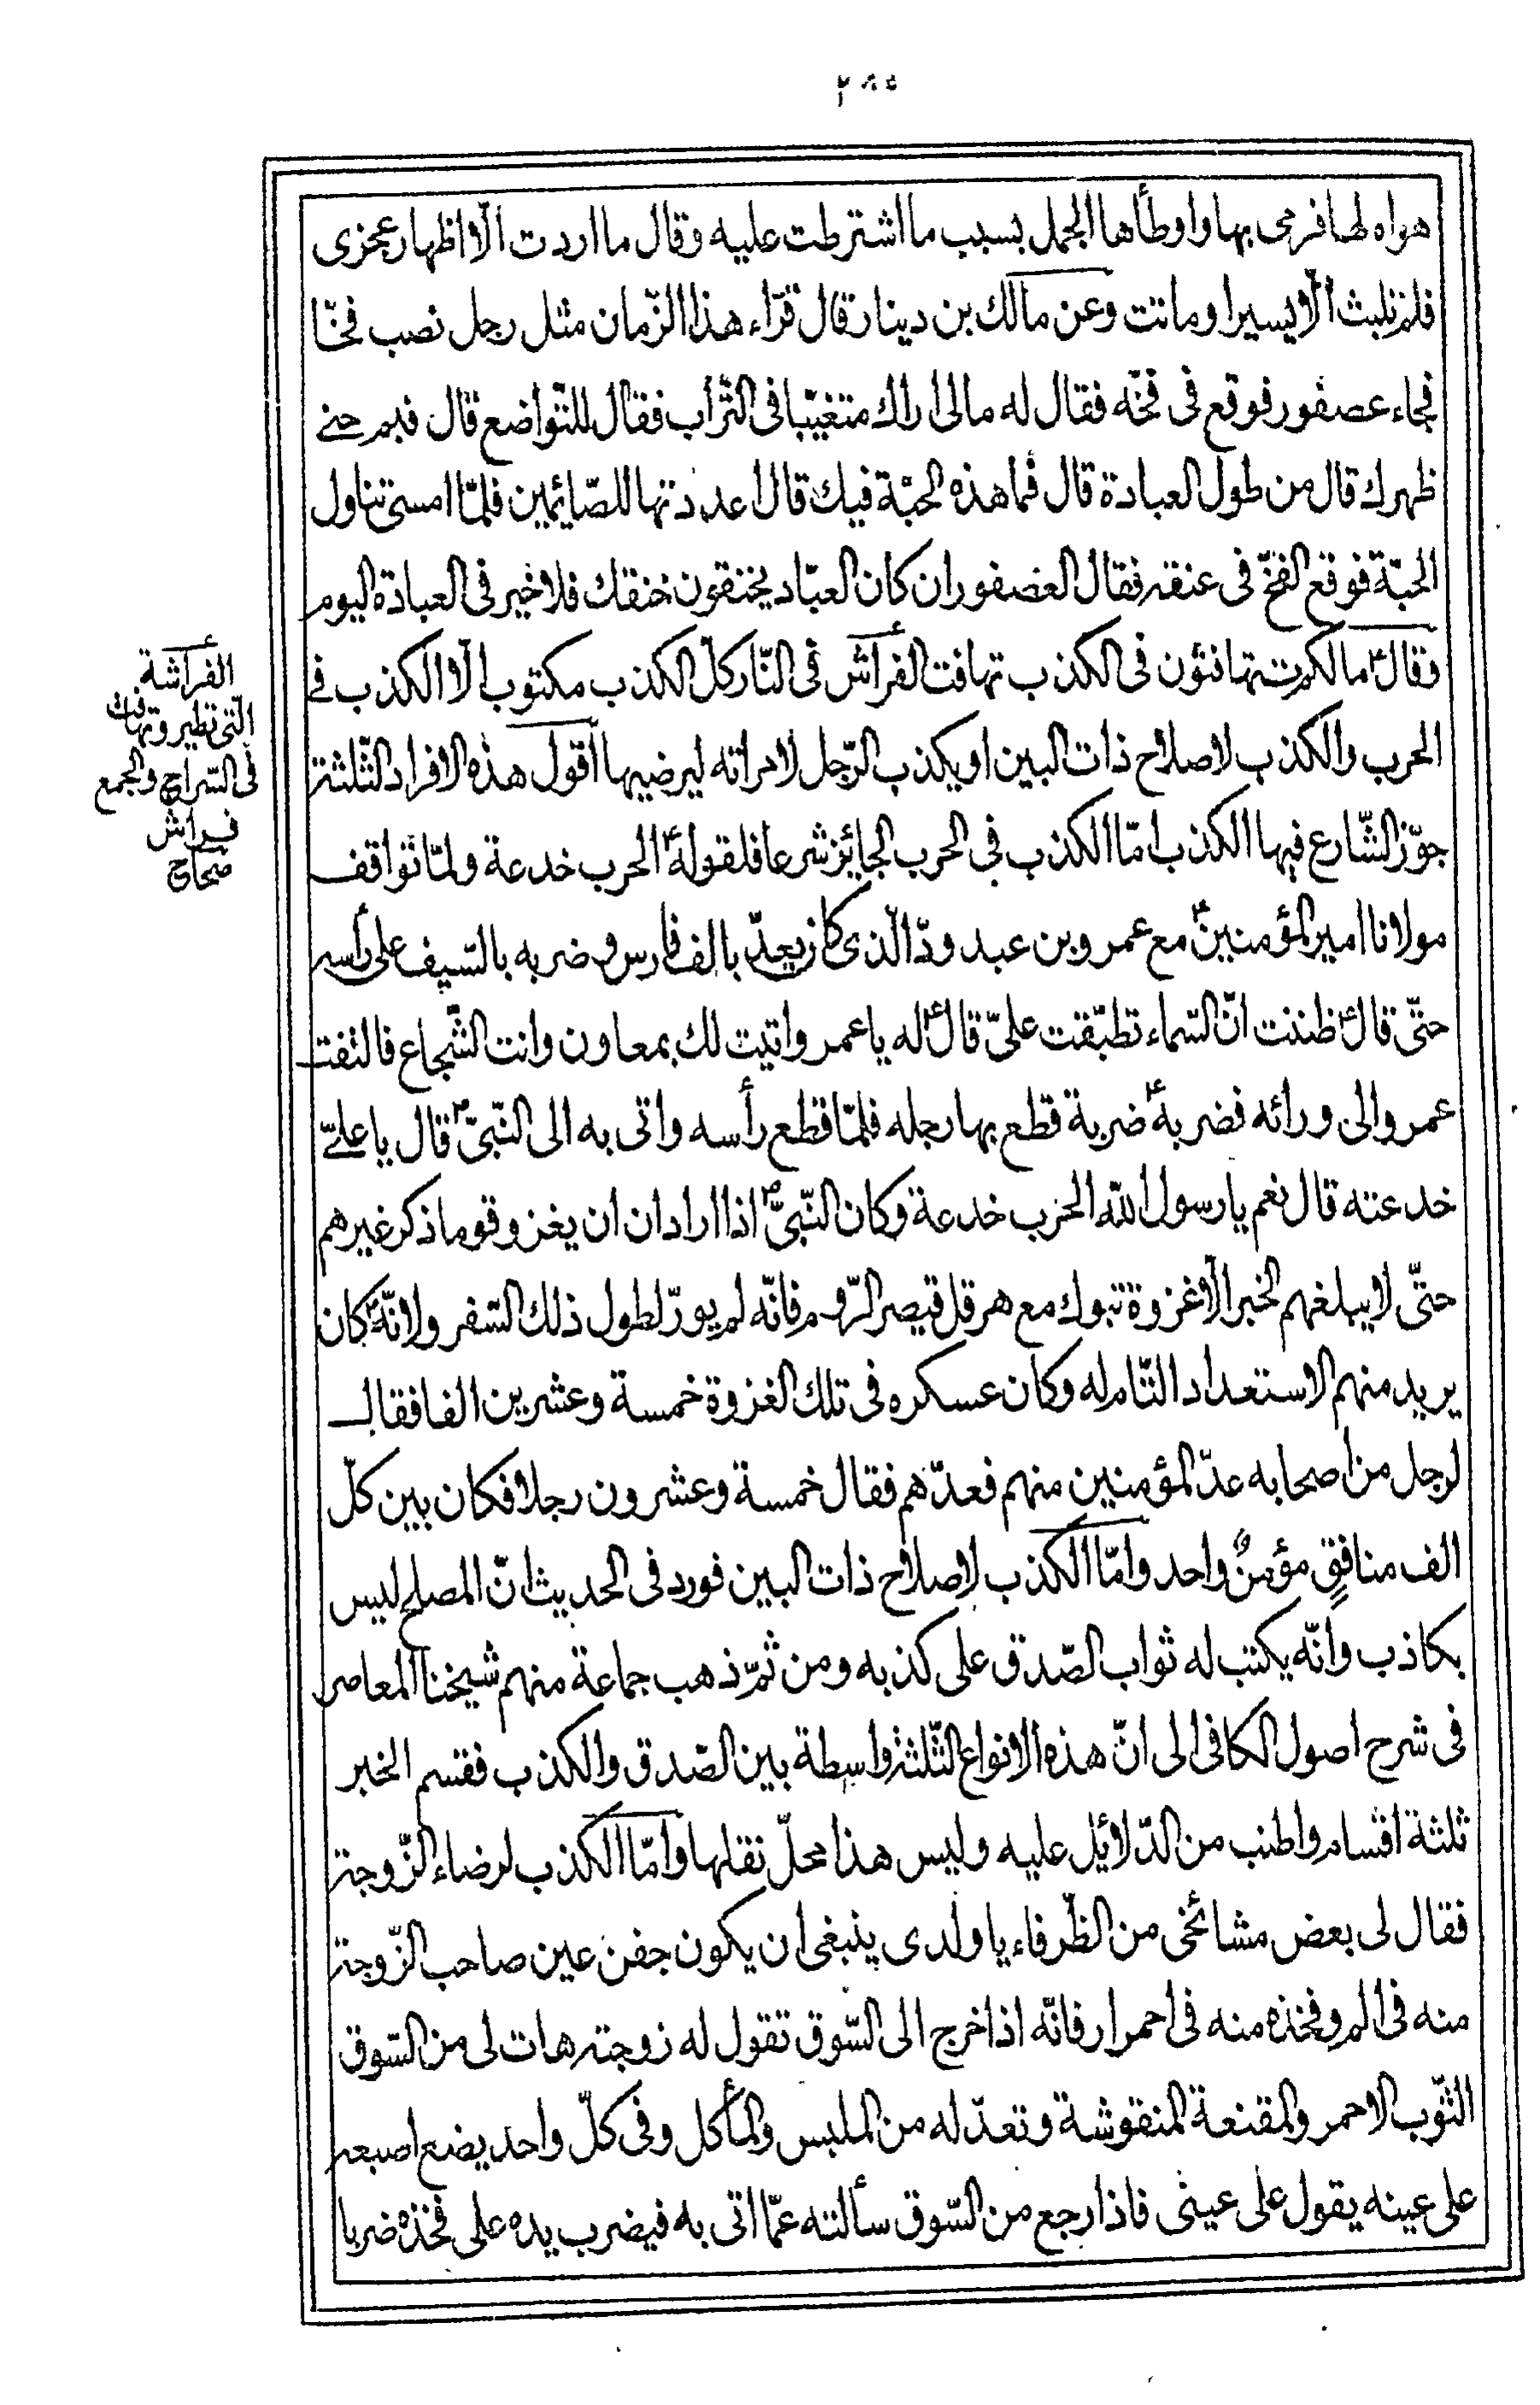 ٢٨٥
هواه لها فرمى بها واوطأها الجمل بسبب ما اشترطت عليه وقال ما اردت الّا اظهار عجزى
فلم تلبث الّا يسيرا وماتت وعن مالك بن دينار قال قرّاء هذا الزّمان مثل رجل نصب فخّا
فجاء عصفور فوقع فى فخّه فقال له مالى اراك متغيّبا فى التّراب فقال للتّواضع قال فبم حنى
ظهرك قال من طول العبادة قال فما هذه الحبّة فيك قال اعددتها للصّائمين فلمّا امسى تناول
الحبّة فوقع الفخّ فى عنقه فقال العصفور ان كان العبّاد يخنقون خنقك فلا خير فى العبادة اليوم
وقالؑ مالكم تتهافتون فى الكذب تهافت الفراش فى النّار كلّ الكذب مكتوب الّا الكذب فى
الحرب والكذب لاصلاح ذات البين او يكذب الرّجل لامراته ليرضيها اقول هذه الافراد الثّلثة
جوّز الشّارع فيها الكذب امّا الكذب فى الحرب الجائز شرعا فلقولهؑ الحرب خدعة ولمّا تواقف
مولانا امير المؤمنينؑ مع عمرو بن عبد ودّ الّذى كان يعدّ بالف فارس وضربه بالسّيف على رأسه
حتّى قالؑ ظننت انّ السّماء تطبّقت علىّ قالؑ له يا عمرو اتيت لك بمعاون وانت الشّجاع فالتفت
عمرو الى ورائه فضربهؑ ضربة قطع بها رجله فلمّا قطع رأسه واتى به الى النّبىّؐ قال يا علىّ
خدعته قال نعم يا رسول اللّه الحرب خدعة وكان النّبىّؐ اذا اراد ان ان يغزو قوما ذكر غيرهم
حتّى لا يبلغهم الخبر الّا غزوة تبوك مع هرقل قيصر الرّوم فانّه لم يورّ لطول ذلك السّفر ولانّهؑ كان
يريد منهم الاستعداد التّام له وكان عسكره فى تلك الغزوة خمسة وعشرين الفا فقال
لرجل من اصحابه عدّ المؤمنين منهم فعدّهم فقال خمسة وعشرون رجلا فكان بين كلّ
الف منافقٍ مؤمنٌ واحد وامّا الكذب لاصلاح ذات البين فورد فى الحديث انّ المصلح ليس
بكاذب وانّه يكتب له ثواب الصّدق على كذبه ومن ثمّ ذهب جماعة منهم شيخنا المعاصر
فى شرح اصول الكافى الى انّ هذه الانواع الثّلثة واسطة بين الصّدق والكذب فقسم الخبر
ثلثة اقسام واطنب من الدّلائل عليه وليس هذا محلّ نقلها وامّا الكذب لرضاء الزّوجة
فقال لى بعض مشائخى من الظّرفاء يا ولدى ينبغى ان يكون جفن عين صاحب الزّوجة
منه فى الم وفخذه منه فى احمرار فانّه اذا خرج الى السّوق تقول له زوجته هات لى من السّوق
الثّوب الاحمر والمقنعة المنقوشة وتعدّ له من الملبس والمأكل وفى كلّ واحد يضع اصبعه
على عينه يقول على عينى فاذا رجع من السّوق سألته عمّا اتى به فيضرب يده على فخذه ضربا
الفراشة
الّتى تطير وتهافت
فى السّراج والجمع
فراش
صحاح